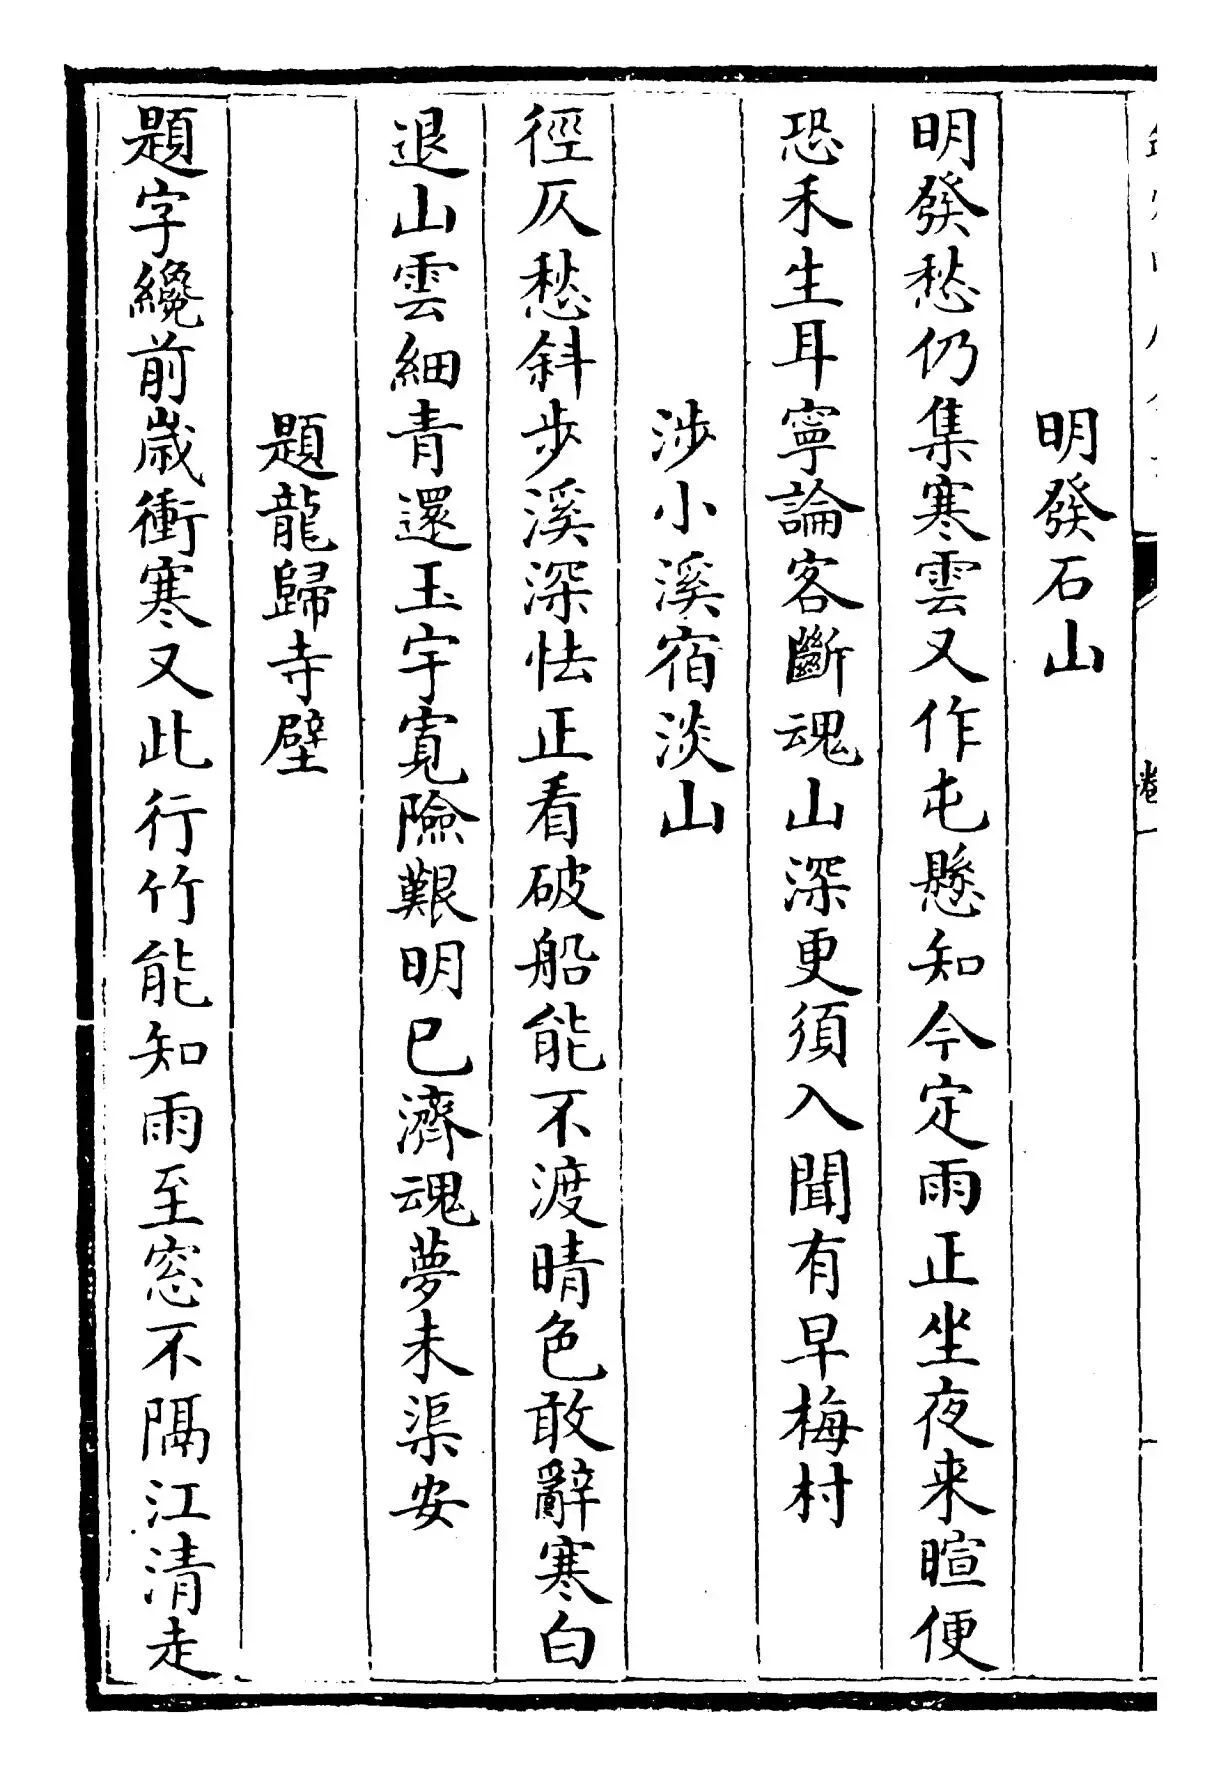 卷
明發石山
明發愁仍集寒雲又作屯懸知今定雨正坐夜来暄便
恐禾生耳寧論客斷魂山深更須入聞有早梅村
涉小溪宿淡山
徑仄愁斜步溪深怯正看破船能不渡晴色敢辭寒白
退山雲細青還玉宇寛險艱明已濟魂夢未渠安
題龍歸寺壁
題字纔前歳衝寒又此行竹能知雨至窓不隔江清走